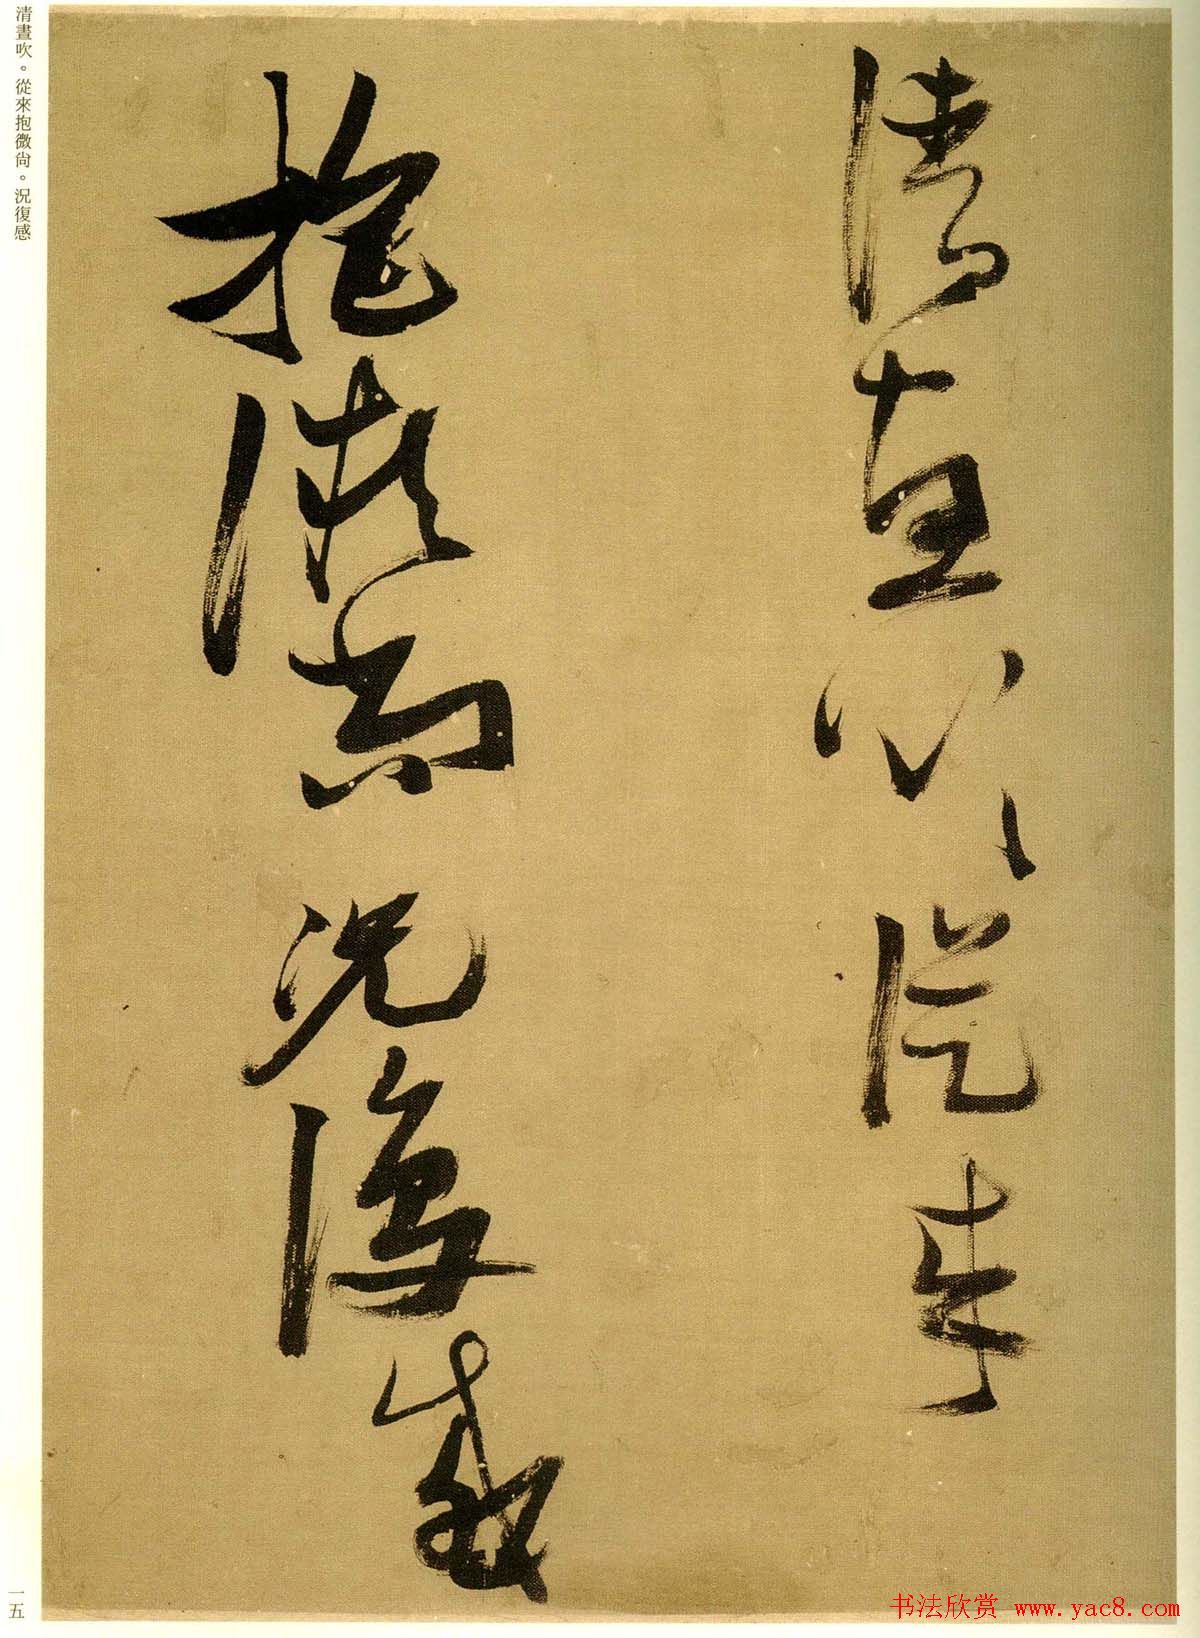 清晝吹從來
抱微尚況復感
清晝吹。從來抱微尚。況復感
一五
书法欣赏 www.yac8.com